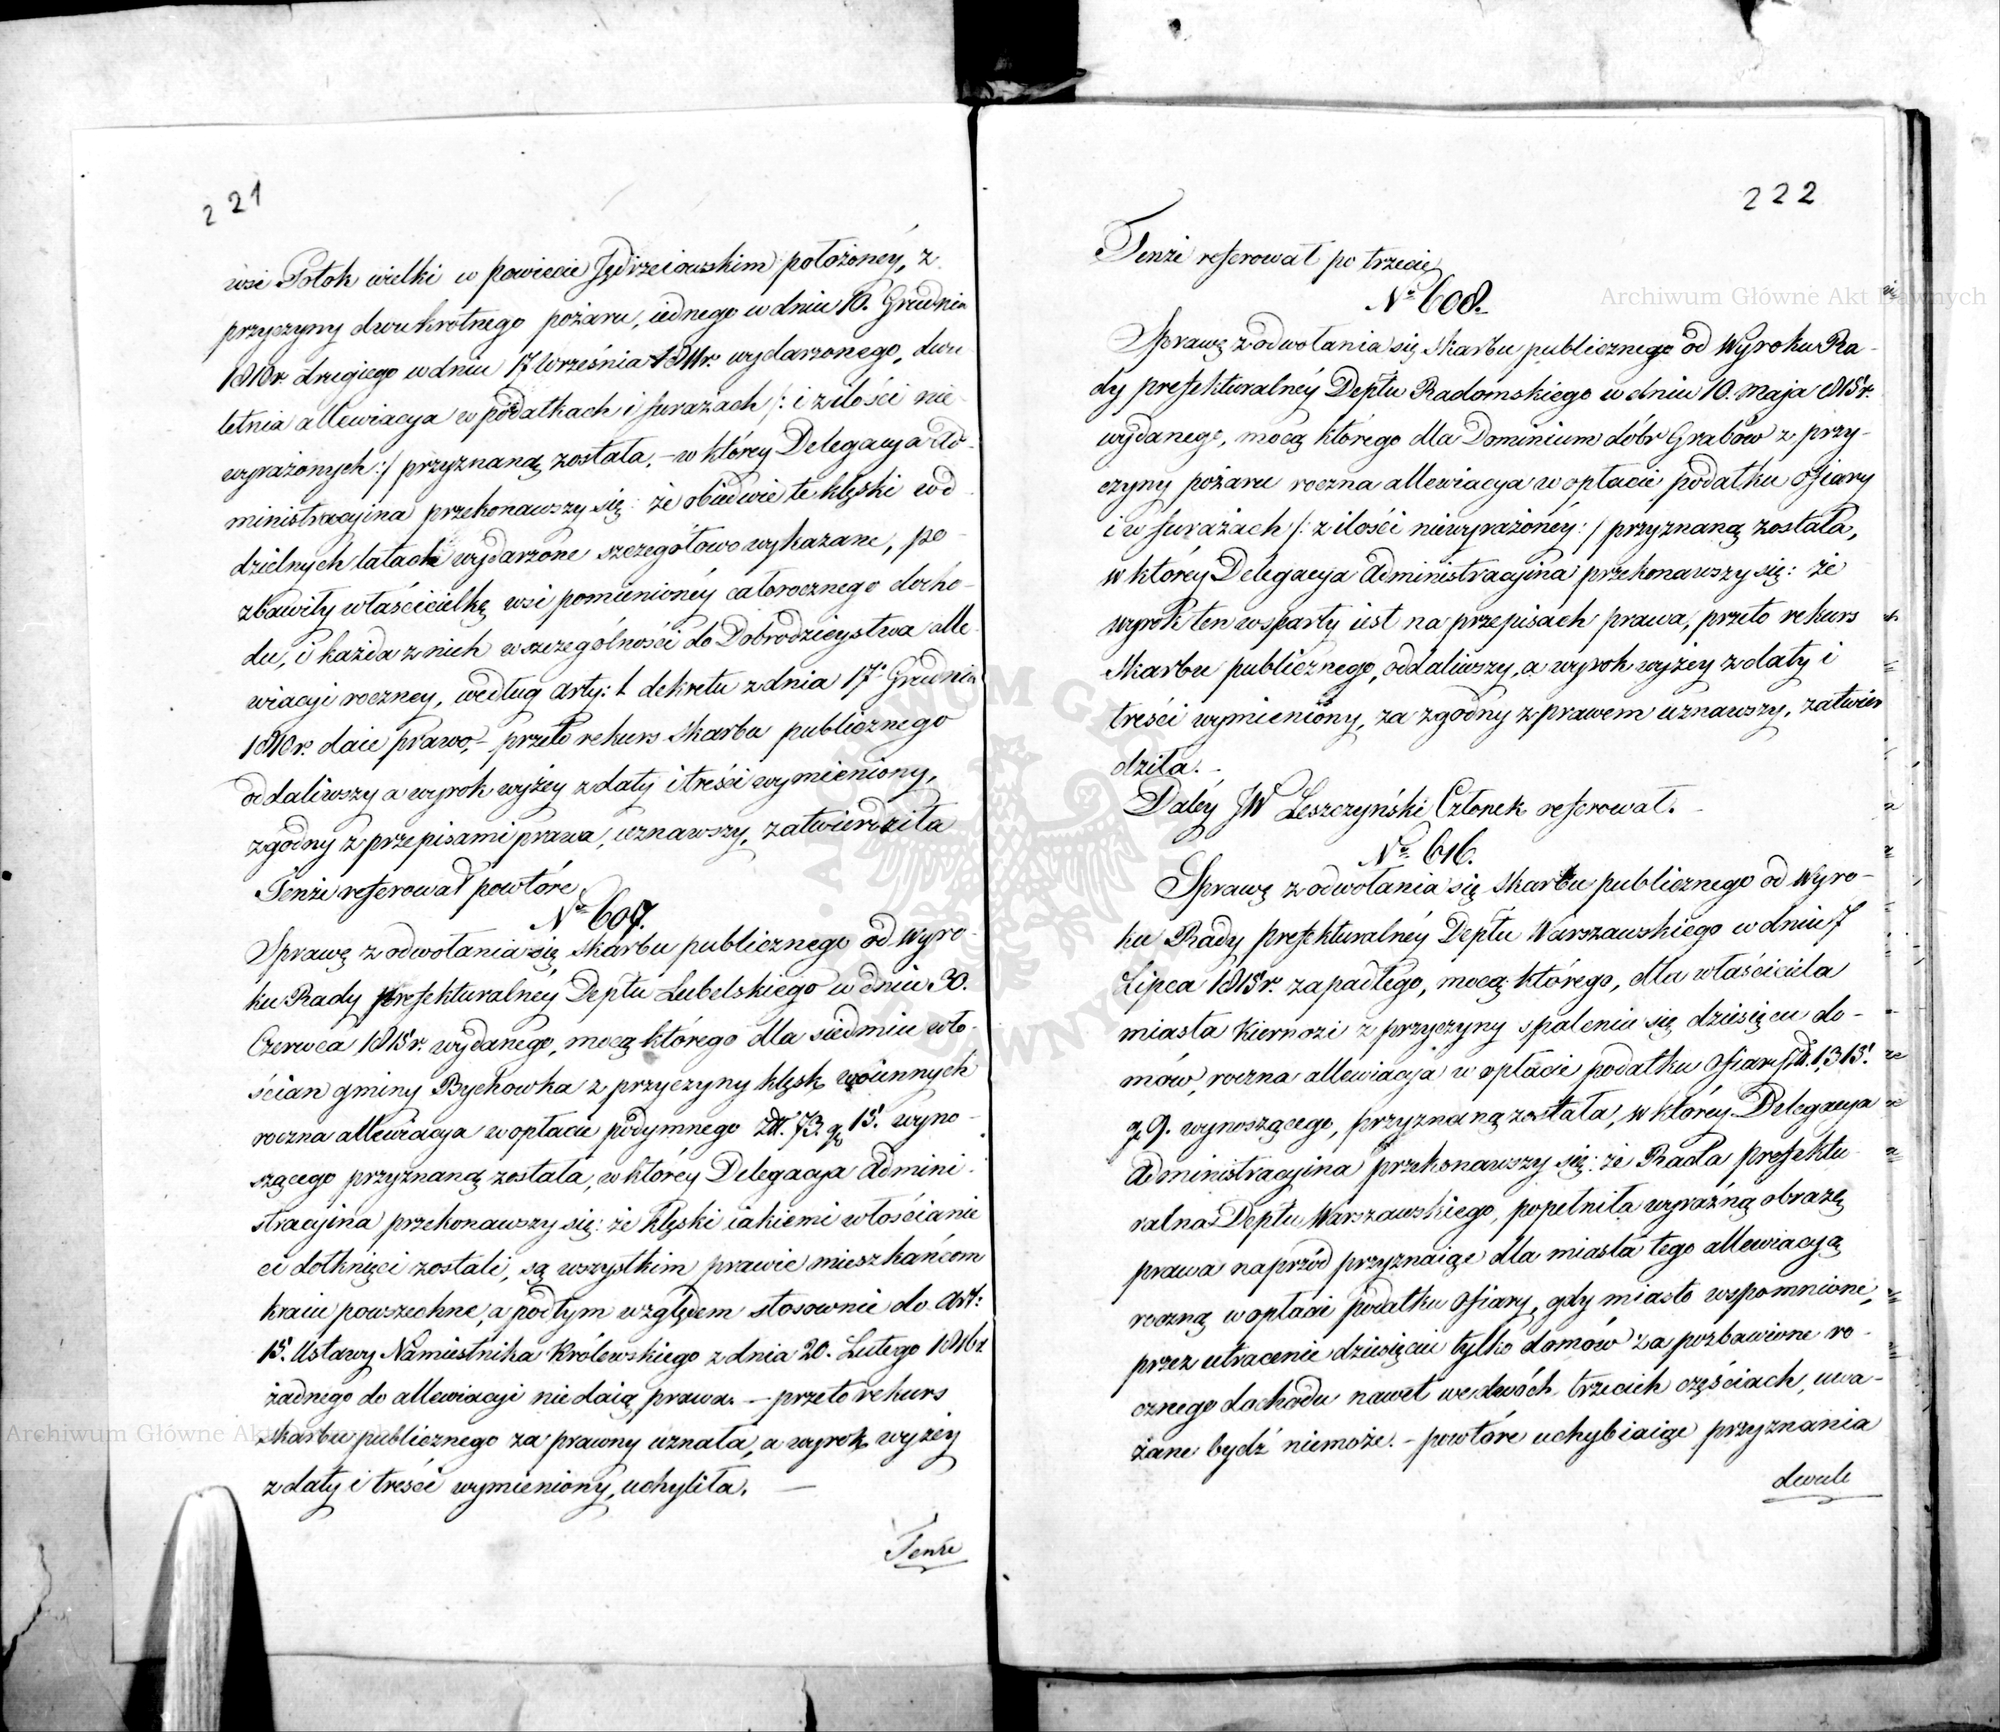 221
wsi Potok wielki w powiecie Jędrzeiowskim położoney, z
przyczyny dwukrotnego pożaru, iednego w dniu 10. Grudnia
1810r. drugiego w dniu 17 Września 1811r. wydarzonego, dwu
letnia allewiacya w podatkach i furażach /: i z ilości nie
wyrażonych :/ przyznaną została, – w którey Delegacya Ad-
ministracyina przekonawszy się: że obiedwie te klęski w od
dzielnych latach wydarzone szczegółowo wykazane, po-
zbawiły właścicielkę wsi pomienioney całorocznego docho-
du, i każda z nich w szczególności do Dobrodzieystwa alle-
wiacyi roczney, według arty: 1 dekretu z dnia 17. Grudnia
1810r. daie prawo, – przeto rekurs Skarbu publicznego
oddaliwszy a wyrok wyżey z daty i treści wymieniony,
zgodny z przepisami prawa, uznawszy, zatwierdziła
Tenże referował powtóre
No 607.
Sprawę z odwołania się Skarbu publicznego od Wyro-
ku Rady prefekturalney Deptu Lubelskiego w dniu 30.
Czerwca 1815r. wydanego, mocą którego dla siedmiu wło-
ścian gminy Bychowka z przyczyny klęsk woiennych
roczna allewiacya w opłacie podymnego Zł. 73. g 15. wyno-
szącego przyznaną została, w którey Delegacya Admini-
stracyina przekonawszy się: że klęski iakiemi włościanie
ci dotknięci zostali, są wszystkim prawie mieszkańcom
kraiu powszechne, a pod tym względem stosownie do Art:
15. Ustawy Namiestnika Królewskiego z dnia 20. Lutego 1816r
żadnego do allewiacyi nie daią prawa. – przeto rekurs
Skarbu publicznego za prawny uznała, a wyrok wyżey
z daty i treści wymieniony, uchyliła. –
Tenże
222
Tenże referował po trzecie
No 608.
Sprawę z odwołania się Skarbu publicznego od Wyroku Ra-
dy prefekturalney Deptu Radomskiego w dniu 10. Maja 1815r.
wydanego, mocą którego dla Dominium dóbr Grabów z przy-
czyny pożaru roczna allewiacya w opłacie podatku Ofiary
i w furażach /: z ilości niewyrażoney :/ przyznaną została,
w którey Delegacya Administracyina przekonawszy się: że
wyrok ten wsparty iest na przepisach prawa, przeto rekurs
Skarbu publicznego, oddaliwszy, a wyrok wyżey z daty i
treści wymieniony, za zgodny z prawem uznawszy, zatwier
dziła. –
Daley JW Leszczyński Członek referował. –
No 616.
Sprawę z odwołania się Skarbu publicznego od Wyro-
ku Rady prefekturalney Deptu Warszawskiego w dniu 7
Lipca 1815r. zapadłego, mocą którego, dla właściciela
miasta Kiernozi z przyczyny spalenia się dziesięciu do-
mów, roczna allewiacya w opłacie podatku Ofiary Zł. 1,315.
g 9. wynoszącego, przyznaną została, w którey Delegacya
Administracyina przekonawszy się: że Rada prefektu-
ralna Deptu Warszawskiego, popełniła wyraźną obrazę
prawa naprzód przyznaiąc dla miasta tego allewiacyą
roczną w opłacie podatku Ofiary, gdy miasto wspomnione,
przez utracenie dziesięciu tylko domów za pozbawione ro-
cznego dochodu nawet we dwóch trzecich częściach, uwa-
żane bydź niemoże. – powtóre uchybiaiąc przyznania
dwule
Archiwum Główne Akt Dawnych
Archiwum Główne Akt Dawnych